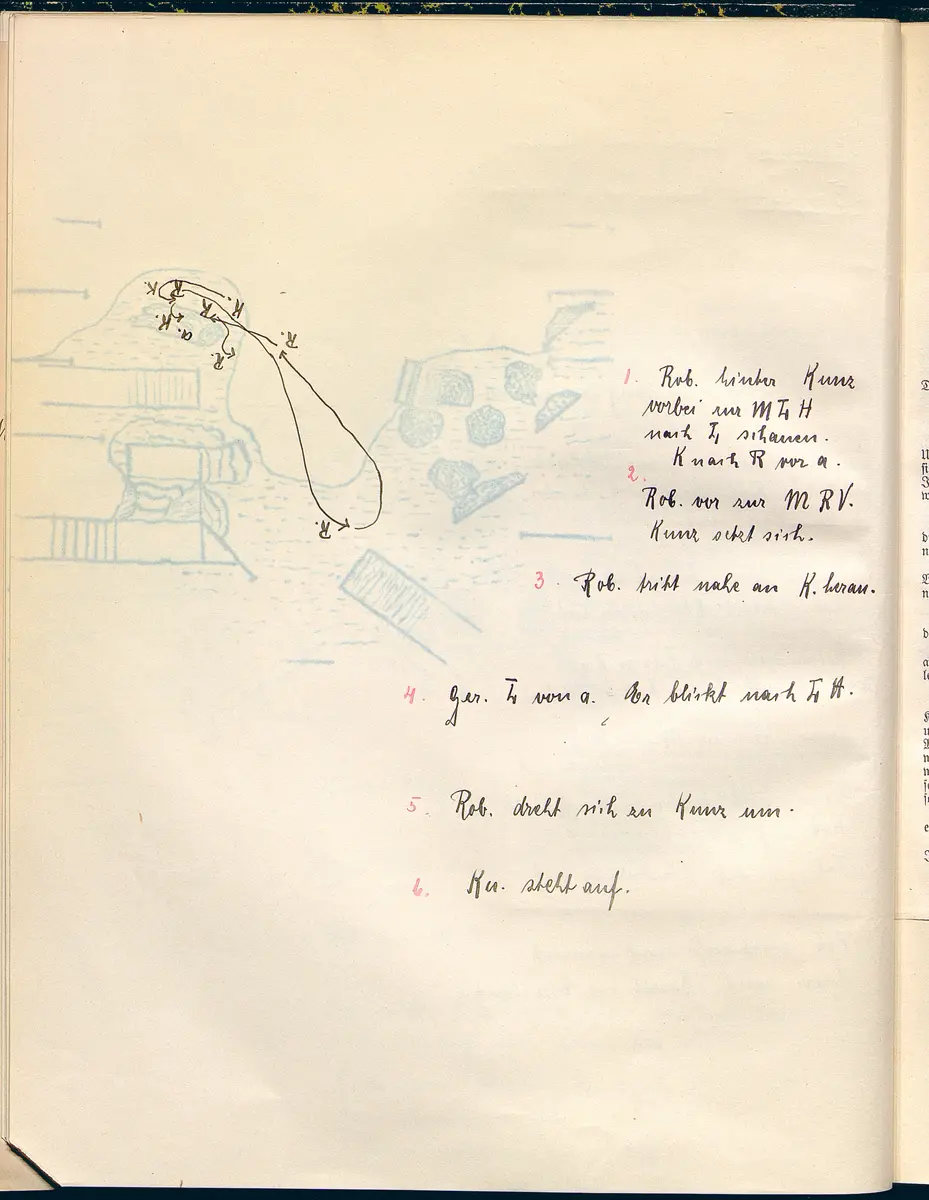 K.
R
K.
R
K.
a.
R.
R.
R.
1. Rob. hinter Kunz
vorbei zur M L H
nach L schauen.
K nach R vor a.
2.
Rob. vor zur M R V.
Kunz setzt sich.
3. Rob. tritt nahe an K. heran.
4. Ger. L von a. Er blickt nach L H.
5. Rob. dreht sich zu Kunz um.
6. Ku. steht auf.